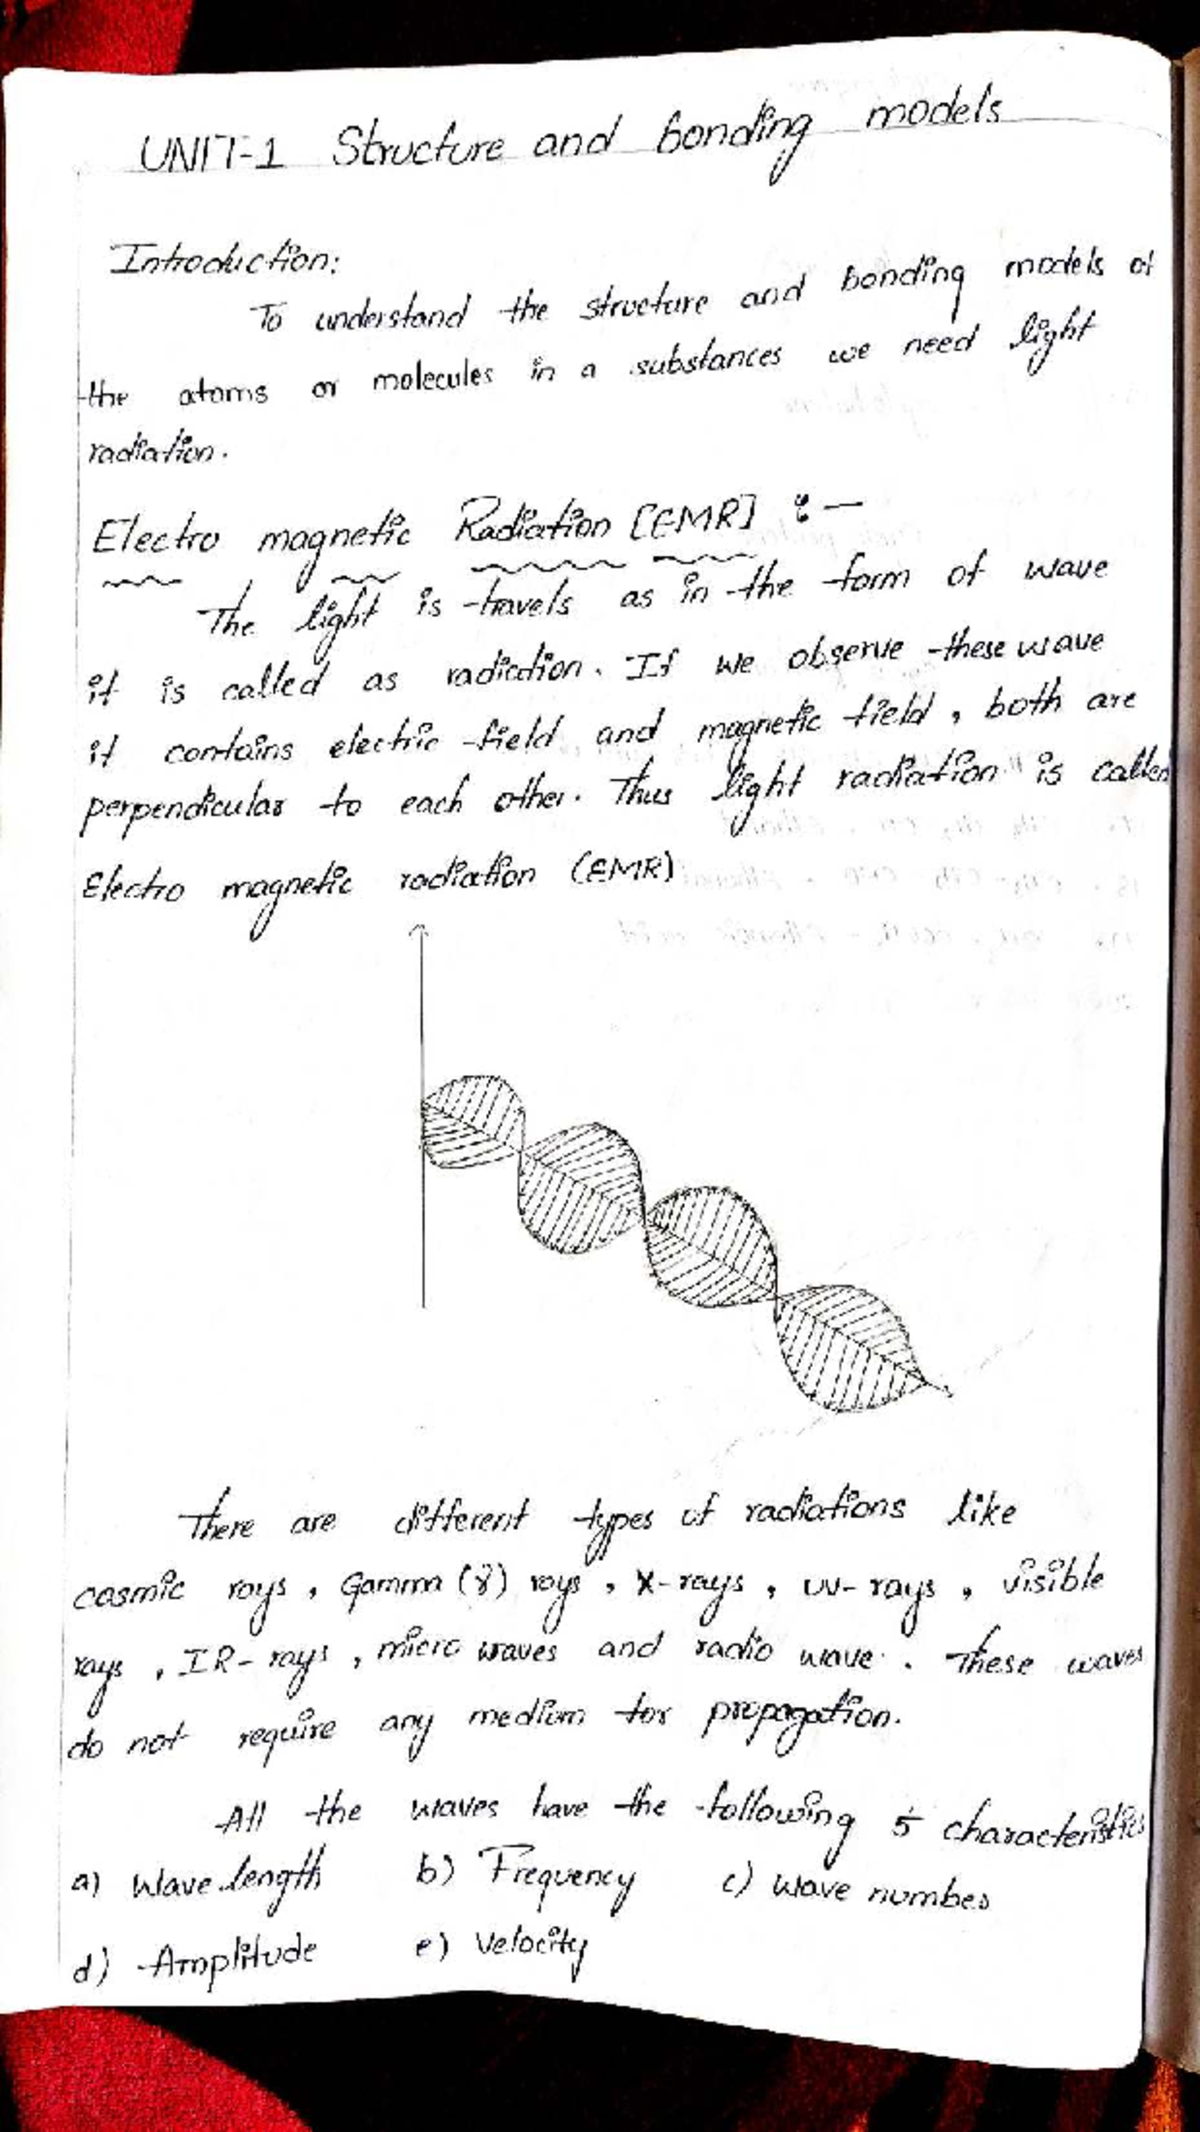 UNIT-1 Structure and bonding models
Introduction:
To understand the structure and bonding models of
the atoms or molecules in a substances we need light
radiation.
Electro magnetic Radiation [EMR] :-
The light is travels as in the form of wave
it is called as radiation. If we observe these wave
it contains electric field and magnetic field, both are
perpendicular to each other. Thus light radiation is called
Electro magnetic radiation (EMR)
There are different types of radiations like
cosmic rays, Gamma (γ) rays, X-rays, UV-rays, visible
rays, IR-rays, micro waves and radio wave. These waves
do not require any medium for propagation.
All the waves have the following 5 characteristics
a) Wave length b) Frequency c) Wave number
d) Amplitude e) Velocity